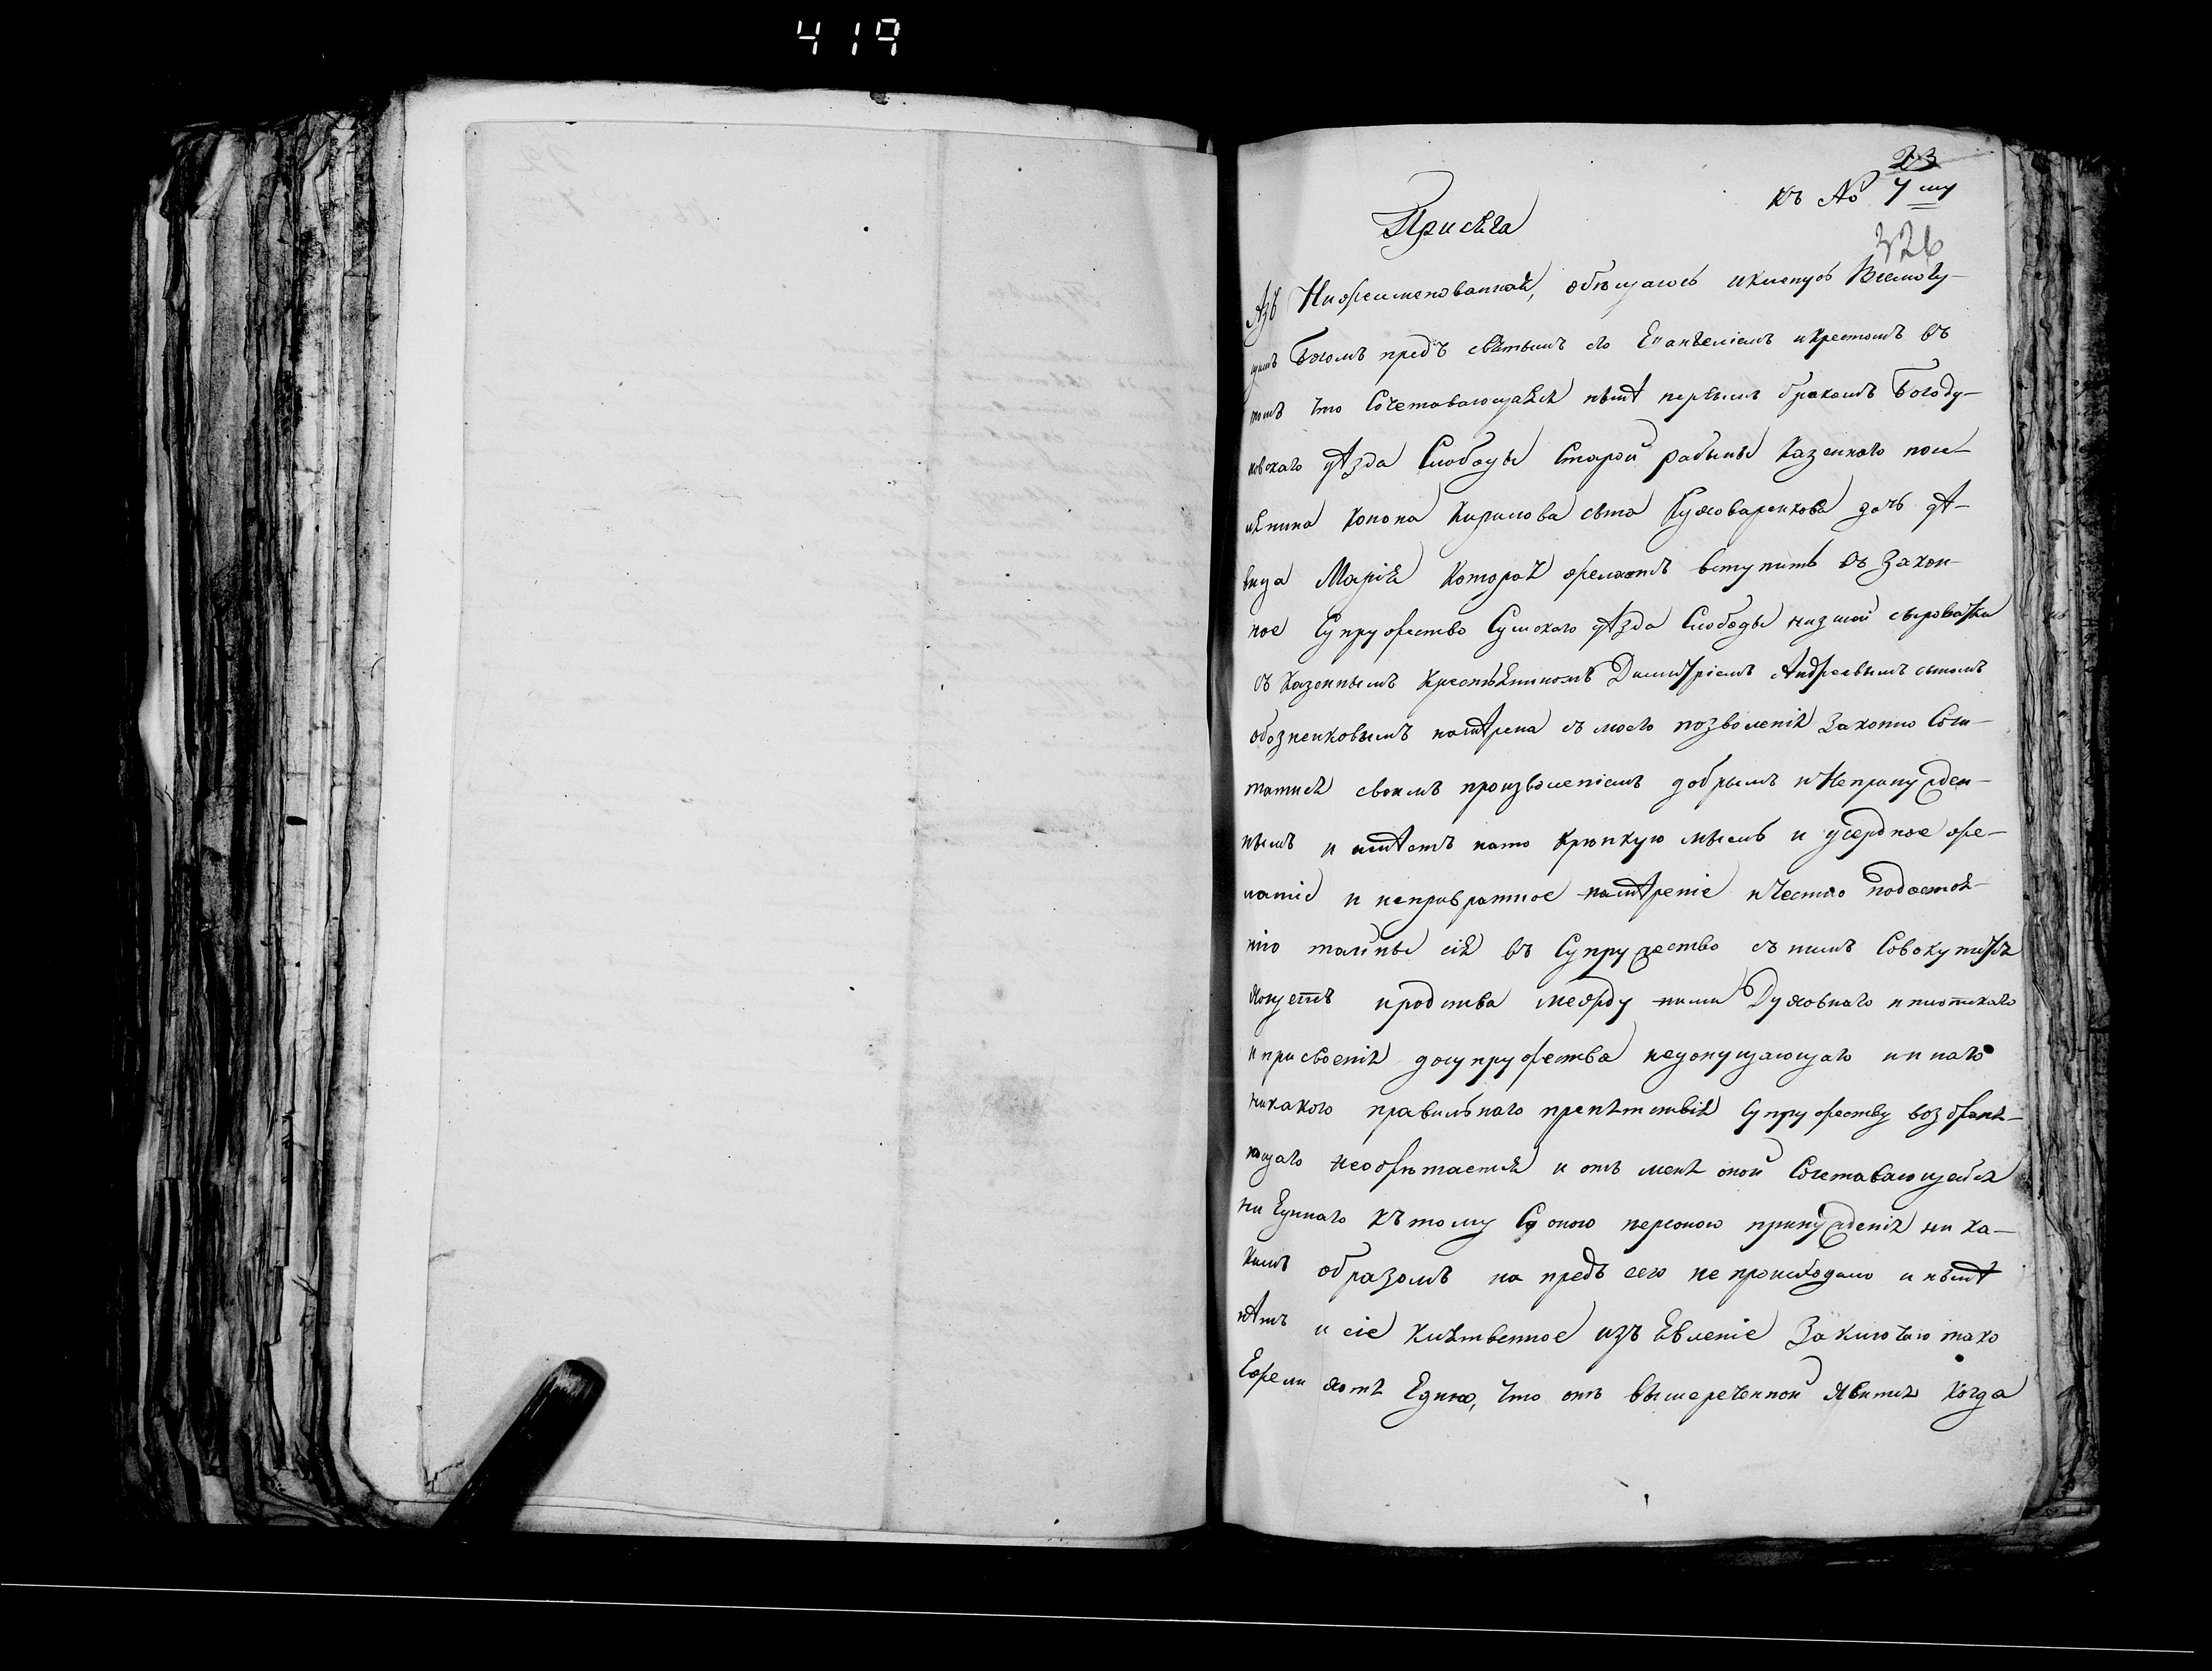 419
23
къ № 7му
326
Присѧга
Азъ Нижеименованнай, обѣщаюсь иклянусь Всемогу-
щимъ Богомъ предъ свѧтымъ его Евангелiемъ икрестомъ въ
томъ что Сочетавающаѧсѧ нынѣ первымъ бракомъ Богоду-
ховскаго уѣзда Слободы Старой рабыны Казеннаго посе-
лѧнина Конона Кирилова сына Куховаренкова дочь дѣ-
вица Марiѧ Котораѧ желаетъ вступить въ Закон-
ное Супружество Сумскаго уѣзда Слободы низшой сыроватки
съ Казеннымъ Крестьѧниномъ Димитрiемъ Андреевымъ сыномъ
обозненковымъ намѣрена съ моего позволенiѧ Законно Соче-
татисѧ своимъ произволенiемъ добрымъ и Непринужден-
нымъ и имѣетъ нато крѣпкую мысль и усердное же-
ланiе и непревратное намѣренiе и Честно подостоѧ-
нiю тайны сiѧ въ Супружество съ нимъ Совокупитсѧ
хощетъ иродства между ними Духовнаго и плотскаго
и присвоенiѧ досупружества недопущающаго и инаго
никакого правильнаго препѧтствiѧ Супружеству возбранѧ-
ющаго необрѣтаетсѧ и отъ менѧ оной Сочетавающейсѧ
ни Единаго къ тому Съ оною персоною принужденiѧ ни ка-
кимъ образомъ на предъ сего не происходило и нынѣ
нѣтъ и сiе клѧтвенное изъѧвленiе Заключаю тако
Ежели хотѧ Едино, что отъ вышереченной ѧвитсѧ когда